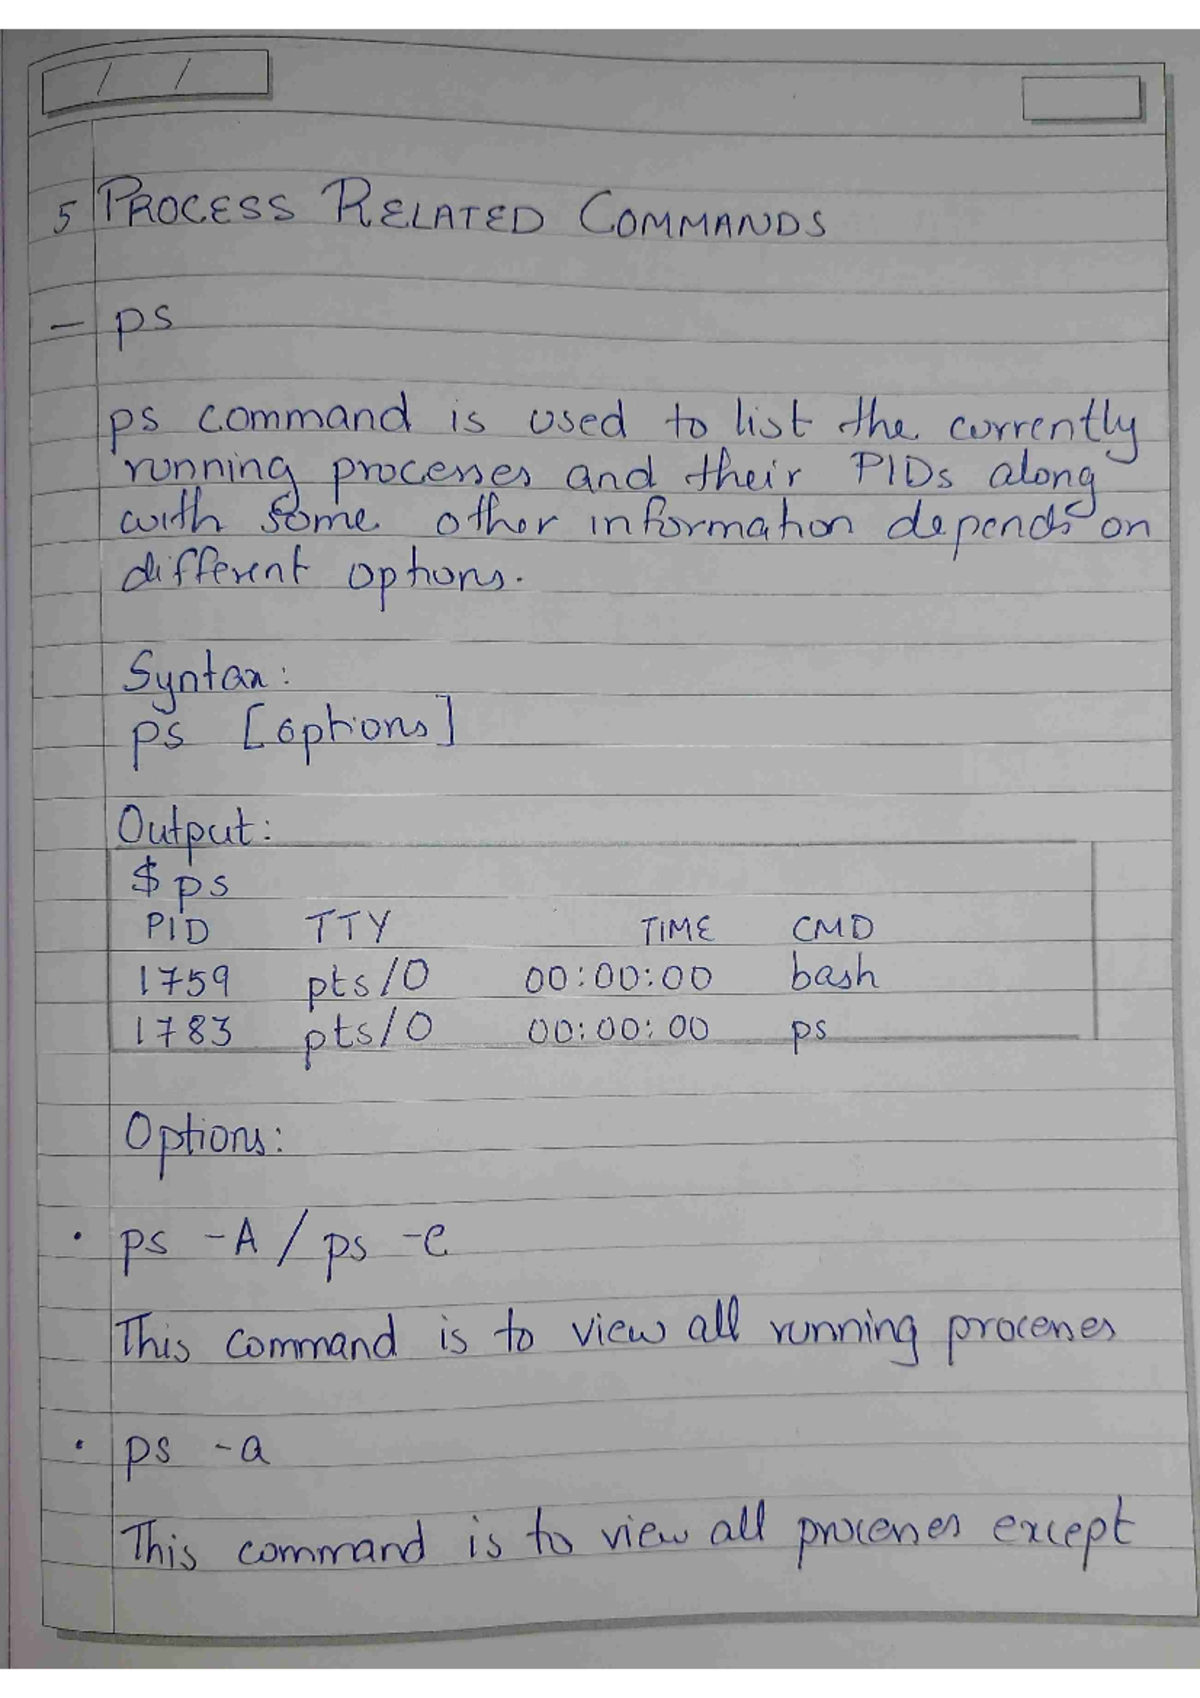 / /
5 PROCESS RELATED COMMANDS
– ps
ps command is used to list the currently
running processes and their PIDs along
with some other information depends on
different options.
Syntax:
ps [options]
Output:
$ ps
PID TTY TIME CMD
1759 pts/0 00:00:00 bash
1783 pts/0 00:00:00 ps
Options:
• ps -A / ps -e
This command is to view all running processes
• ps -a
This command is to view all processes except